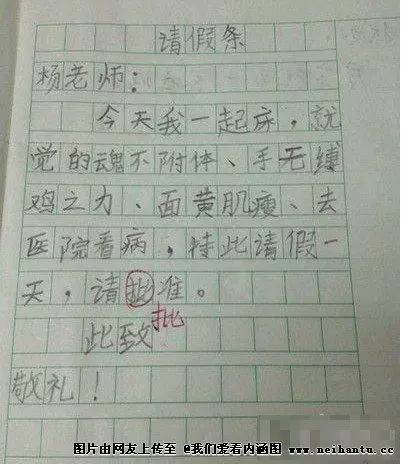 请假条
杨老师：
今天我一起床，就
觉的魂不附体、手无缚
鸡之力、面黄肌瘦、去
医院看病，特此请假一
天，请批准。
批
此致
敬礼！
图片由网友上传至 @我们爱看内涵图 www.neihantu.cc